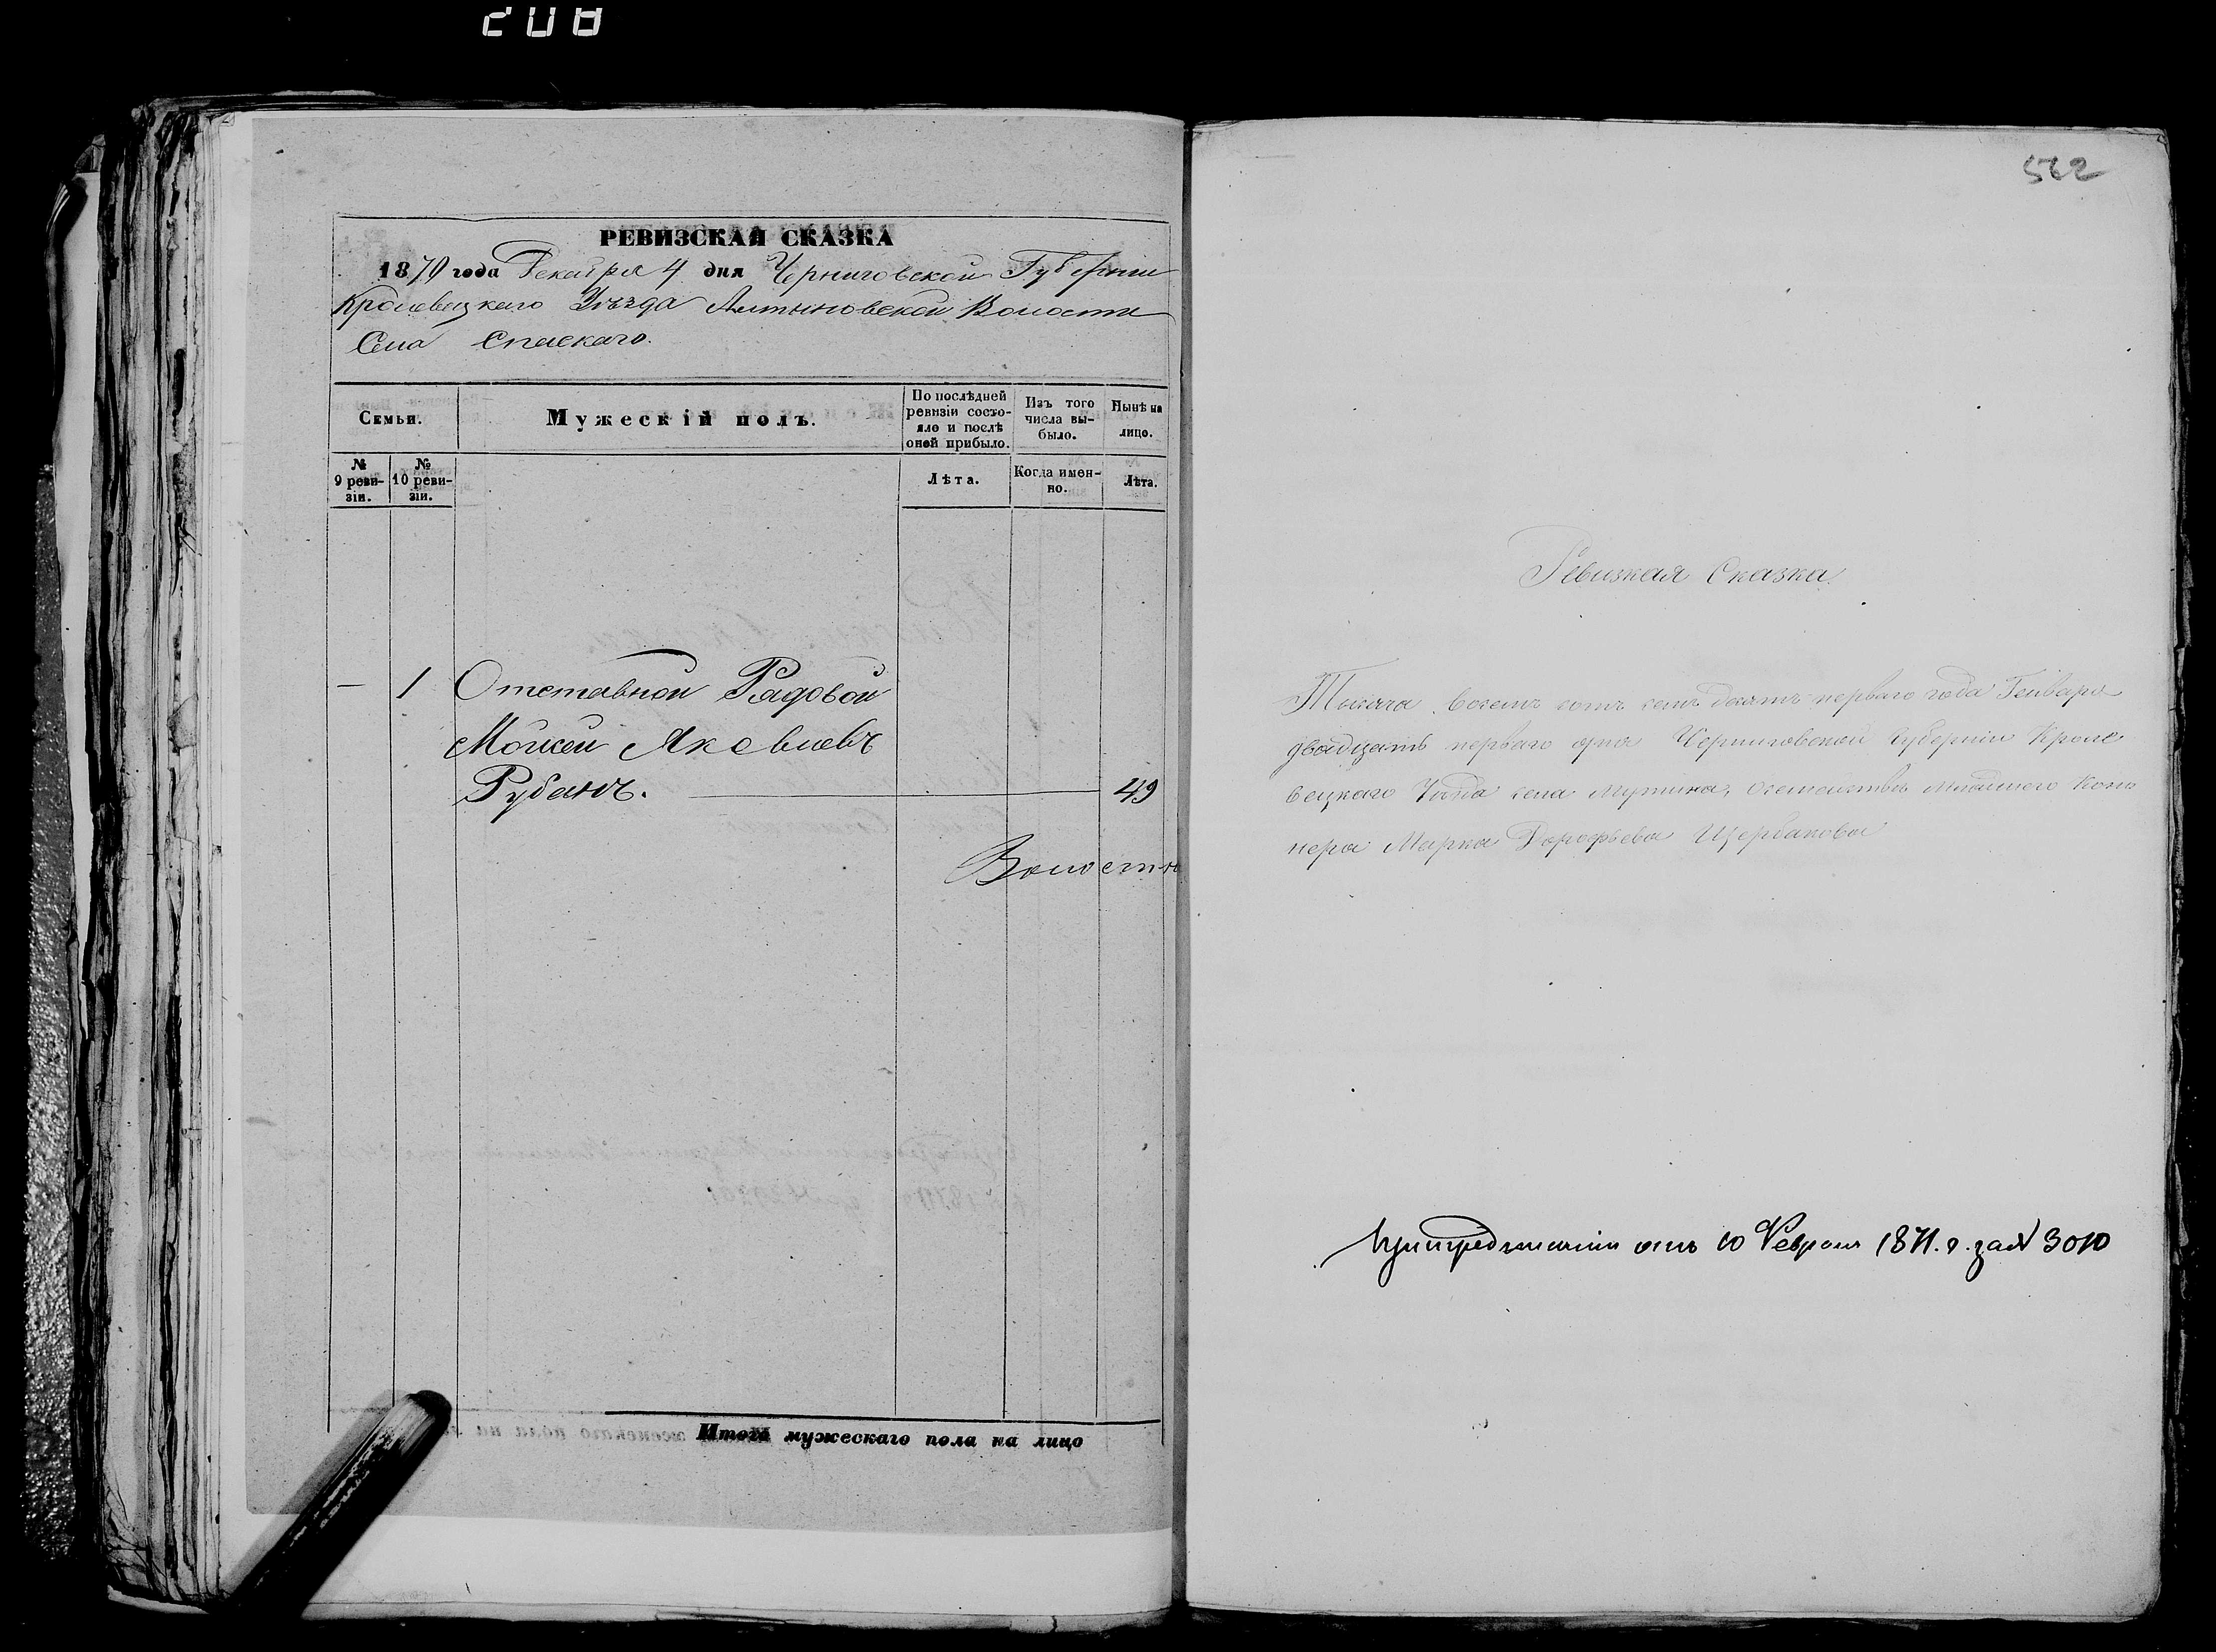 208
РЕВИЗСКАЯ СКАЗКА
1870 года Декабря 4 дня Черниговской Губерніи
Кролевецкаго Уѣзда Алтыновской Волости
Села Спаскаго.
Семьи.
Мужескій полъ.
По послѣдней ревизіи состояло и послѣ оной прибыло.
Изъ того числа выбыло.
Нынѣ на лицо.
№ 9 ревизіи.
№ 10 ревизіи.
Лѣта.
Когда именно.
Лѣта.
— 1 Отставной Рядовой
Мойсей Яковлевъ
Рубанъ. 49
Волостн
Итого мужескаго пола на лицо
562
Ревизкая Сказка
Тысяча восемъ сотъ семъ десятъ перваго года Генваря
двадцать перваго дня Черниговской Губерніи Кроле
вецкаго Уѣзда села Мутина, Семейства Младшего Кано
нера Марка Дорофѣева Щербакова
При предписаніи отъ 10 Февраля 1871. г. за № 3010